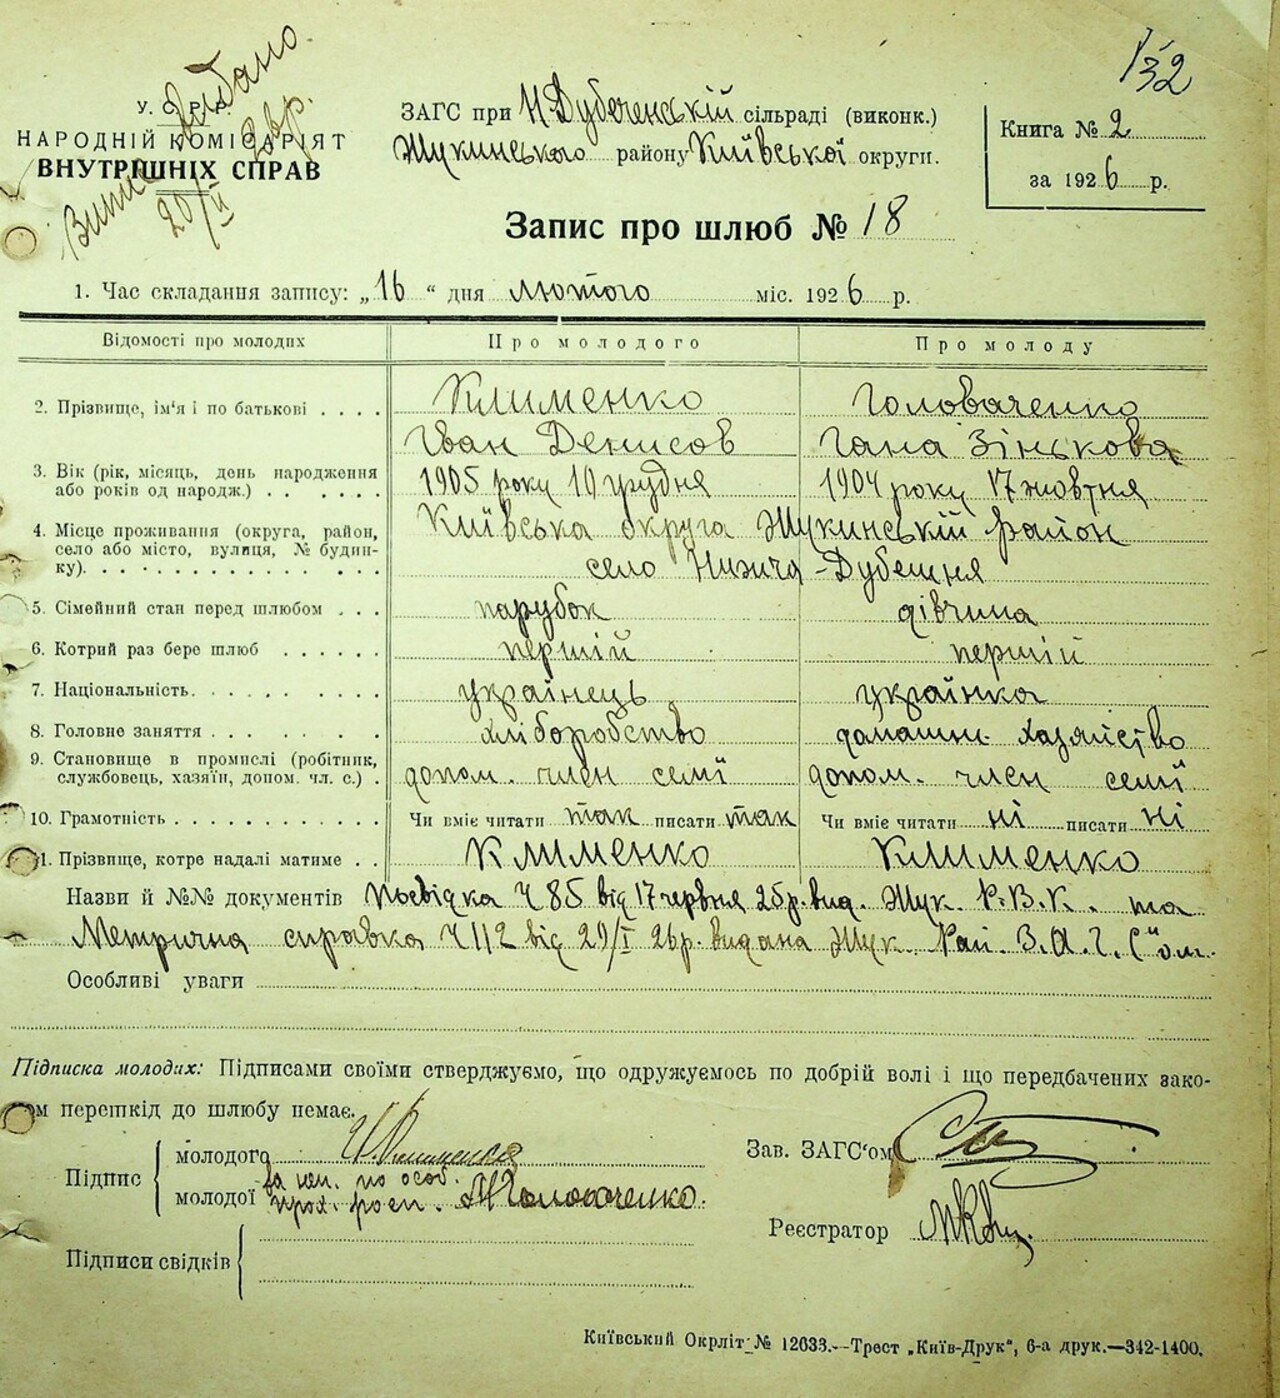 132
У. С. Р. Р.
НАРОДНІЙ КОМІСАРІЯТ
ВНУТРІШНІХ СПРАВ
20/II 26р.
ЗАГС при Н Дубеченській сільраді (виконк.)
Жукинського району Київської округи.
Книга № 2
за 1926 р.
Запис про шлюб № 18
1. Час складання запису: „16“ дня лютого міс. 1926 р.
Відомості про молодих Про молодого Про молоду
2. Прізвище, ім'я і по батькові . . . . Клименко Головаченко
Іван Денисов Гана Зінькова
3. Вік (рік, місяць, день народження або років од народж.) . . . . . . 1905 року 10 грудня 1904 року 17 жовтня
4. Місце проживання (округа, район, Київська округа Жукинський район
село або місто, вулиця, № будин-
ку). . . . . . . . . . . . . . . село Нижча-Дубешня
5. Сімейний стан перед шлюбом . . . парубок дівчина
6. Котрий раз бере шлюб . . . . . . перший першій
7. Національність. . . . . . . . . . українець українка
8. Головне заняття . . . . . . . . хліборобство домашн. хазяйство
9. Становище в промислі (робітник,
службовець, хазяїн, допом. чл. с.) . допом. член семї допом. член семї
10. Грамотність . . . . . . . . . . . . Чи вміє читати так писати так Чи вміє читати ні писати ні
11. Прізвище, котре надалі матиме . . Клименко Клименко
Назви й №№ документів Посвідка Ч 85 від 17 червня 25р. вид. Жук. Р.В.К. та
Метрична справка Ч 112 від 29/I 26р. видана Жук. Рай. З.А.Г.С"ом.
Особливі уваги
Підписка молодих: Підписами своїми стверджуємо, що одружуємось по добрій волі і що передбачених зако-
ном перешкід до шлюбу немає.
Підпис
молодого И. Клименко
за неп. по особ.
молодої прох. росп. Головаченко.
Зав. ЗАГС‘ом
Реєстратор
Підписи свідків
Київський Окрліт № 12633.—Трест „Київ-Друк“, 6-а друк.—342-1400.